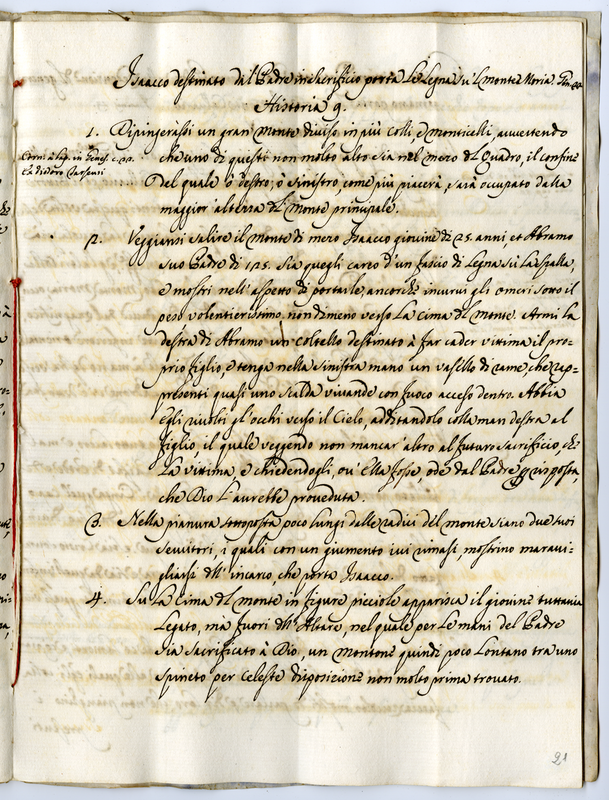 Isaacco destinato dal Padre in sacrificio porta le legna su'l monte Moria. Gen. 22.
Historia 9.
1. Dipingerassi un gran monte diviso in più colli, e monticelli, avvertendo
Corn. à Lap. in Genes. c. 22.
che uno di questi non molto alto sia nel mezo del Quadro, il confine
del quale ò destro, ò sinistro, come più piacerà, sarà occupato dalla
maggior altezza del monte principale.
2. Veggansi salire il monte di mezo Isaacco giovine di 25. anni et Abramo
suo Padre di 125. Sia quegli carco d'un fascio di legna sù la spalla,
e mostri nell'aspetto di portarle, ancorche incurvi gli omeri sotto il
peso volentierissimo nondimeno verso la cima del monte. Armi la
destra di Abramo un coltello destinato à far cader vittima il pro-
prio figlio, e tenga nella sinistra mano un vasello di rame, che rap-
presenti quasi uno scalda vivande con fuoco acceso dentro. Abbia
egli rivolti gl'occhi verso il Cielo, additandolo colla man destra al
figlio, il quale veggendo non mancar'altro al futuro sacrificio, che
la vittima, e chiedendogli, ov'ella fosse, ode dal Padre risposta,
che Dio l'averebbe proveduta.
3. Nella pianura sottoposta poco lungi dalle radici del monte siano due suoi
servitori, i quali con un giumento ivi rimasi, mostrino maravi-
gliarsi dell'incarco, che porta Isaacco.
4. Su la cima del monte in figure picciole apparisca il giovine tuttavia
legato, ma fuori dell'Altare, nel quale per le mani del Padre
sia sacrificato à Dio, un montone quindi poco lontano tra uno
spineto per celeste disposizione non molto prima trovato.
21